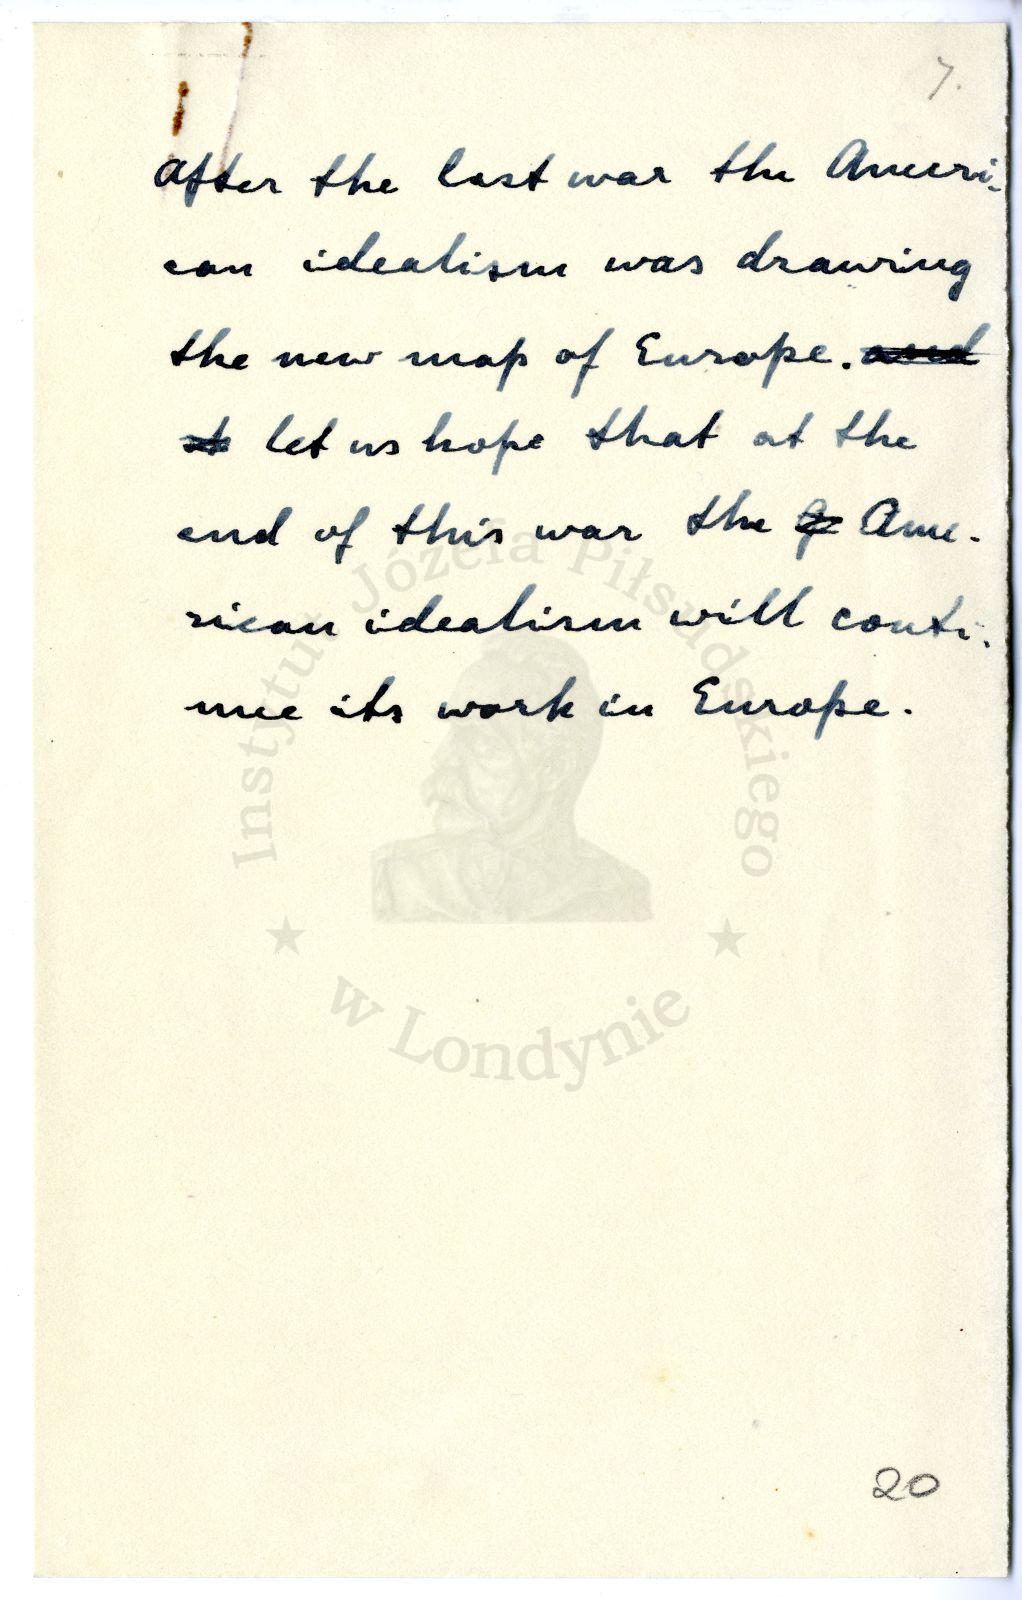 7.
After the last war the Ameri-
can idealism was drawing
the new map of Europe. and
let us hope that at the
end of this war the Ame-
rican idealism will conti-
nue its work in Europe.
Instytut Józefa Piłsudskiego
w Londynie
20